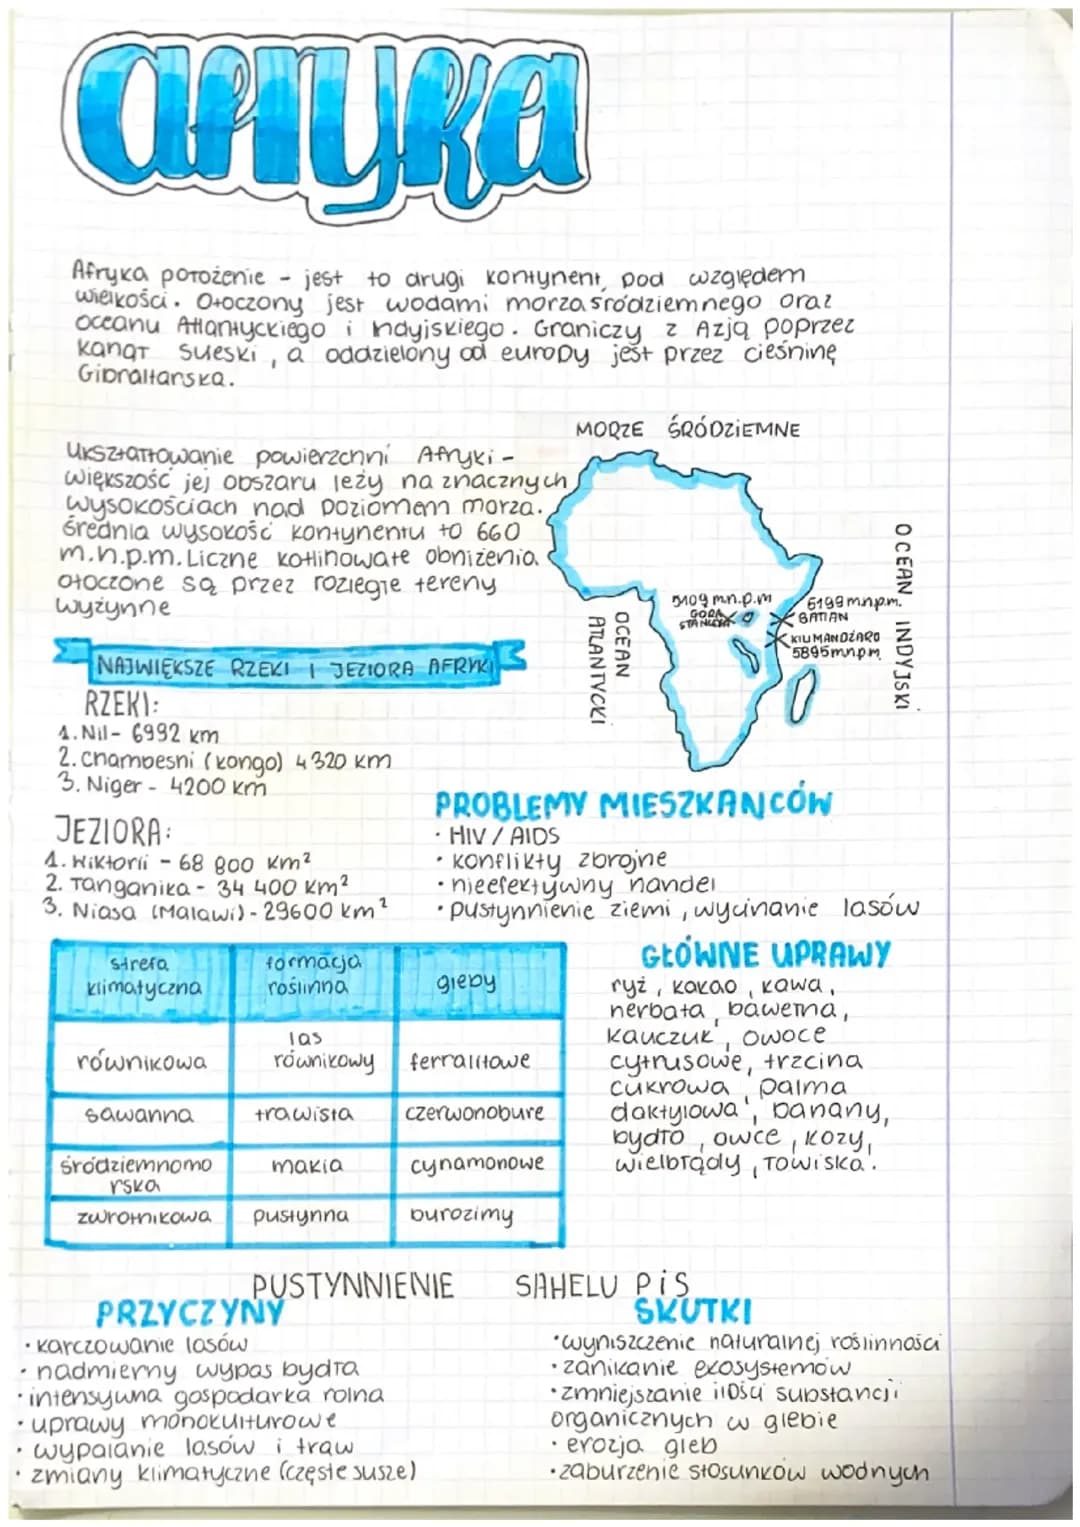 afryka
Afryka położenie - jest to drugi kontynent, pod względem
wielkości. Otoczony jest wodami morza śródziemnego oraz
oceanu Atlantyckiego i Indyjskiego. Graniczy z Azją poprzez
kanał Sueski, a oddzielony od europy jest przez cieśninę
Gibraltarska.
MORZE ŚRÓDZIEMNE
Ukształtowanie powierzchni Afryki -
większość jej obszaru leży na znacznych
wysokościach nad poziomem morza.
średnia wysokość kontynentu to 660
m.n.p.m. Liczne kotlinowate obniżenia
otoczone są przez rozległe tereny
wyżynne
OCEAN INDYJSKI
OCEAN
ATLANTYCKI
5109 m.n.p.m
GÓRA
STANLEYA
6199 m.n.p.m.
BATIAN
KILIMANDŻARO
5895 m.n.p.m
NAJWIĘKSZE RZEKI I JEZIORA AFRYKI
RZEKI:
1. Nil- 6992 km
2. Chambeshi (kongo) 4320 km
3. Niger - 4200 km
JEZIORA:
1. Wiktorii - 68 800 km²
2. Tanganika - 34 400 km²
3. Niasa (Malawi) - 29600 km²
PROBLEMY MIESZKAŃCÓW
· HIV / AIDS
· konflikty zbrojne
· nieefektywny handel
· pustynnienie ziemi, wycinanie lasów
strefa klimatyczna
formacja roślinna
gleby
równikowa
las równikowy
ferralitowe
sawanna
trawista
czerwonobure
śródziemnomo
rska
makia
cynamonowe
zwrotnikowa
pustynna
burozimy
GŁÓWNE UPRAWY
ryż, kakao, kawa,
herbata, bawełna,
kauczuk, owoce
cytrusowe, trzcina
cukrowa, palma
daktylowa, banany,
bydło, owce, kozy,
wielbłądy, łowiska.
PUSTYNNIENIE SAHELU PiS
PRZYCZYNY
· karczowanie lasów
· nadmierny wypas bydła
· intensywna gospodarka rolna
· uprawy monokulturowe
· wypalanie lasów i traw
· zmiany klimatyczne (częste susze)
SKUTKI
· wyniszczenie naturalnej roślinności
· zanikanie ekosystemów
· zmniejszanie ilości substancji
organicznych w glebie
· erozja gleb
· zaburzenie stosunków wodnych